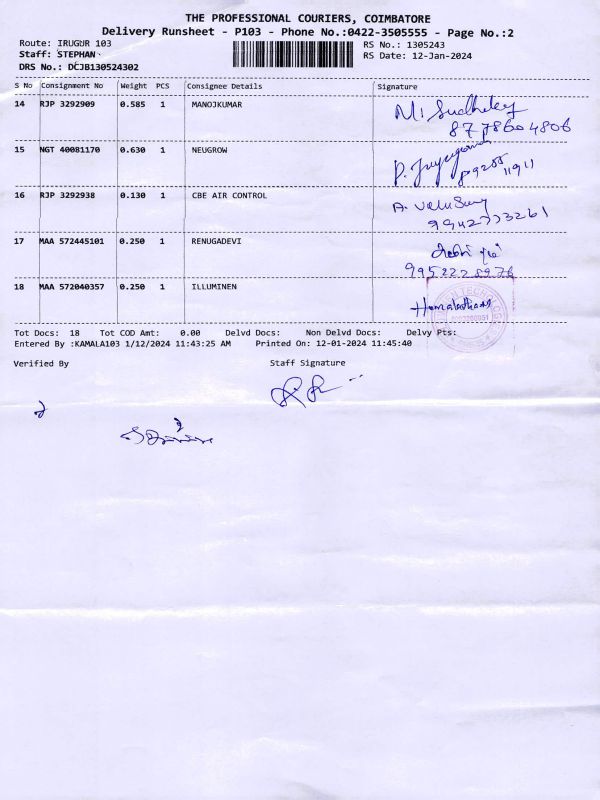 THE PROFESSIONAL COURIERS, COIMBATORE
Delivery Runsheet - P103 - Phone No.:0422-3505555 - Page No.:2
Route: IRUGUR 103 RS No.: 1305243
Staff: STEPHAN RS Date: 12-Jan-2024
DRS No.: DCJB130524302
S No Consignment No Weight PCS Consignee Details Signature
14 RJP 3292909 0.585 1 MANOJKUMAR
8778604806
15 NGT 40081170 0.630 1 NEUGROW
16 RJP 3292938 0.130 1 CBE AIR CONTROL
17 MAA 572445101 0.250 1 RENUGADEVI
18 MAA 572040357 0.250 1 ILLUMINEN
Tot Docs: 18 Tot COD Amt: 0.00 Delvd Docs: Non Delvd Docs: Delvy Pts:
Entered By :KAMALA103 1/12/2024 11:43:25 AM Printed On: 12-01-2024 11:45:40
Verified By Staff Signature